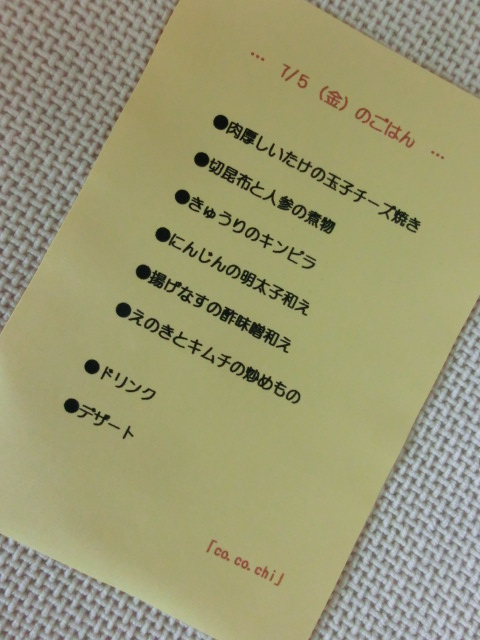 … 7/5（金）のごはん …
●肉厚しいたけの玉子チーズ焼き
●切昆布と人参の煮物
●きゅうりのキンピラ
●にんじんの明太子和え
●揚げなすの酢味噌和え
●えのきとキムチの炒めもの
●ドリンク
●デザート
「co.co.chi」